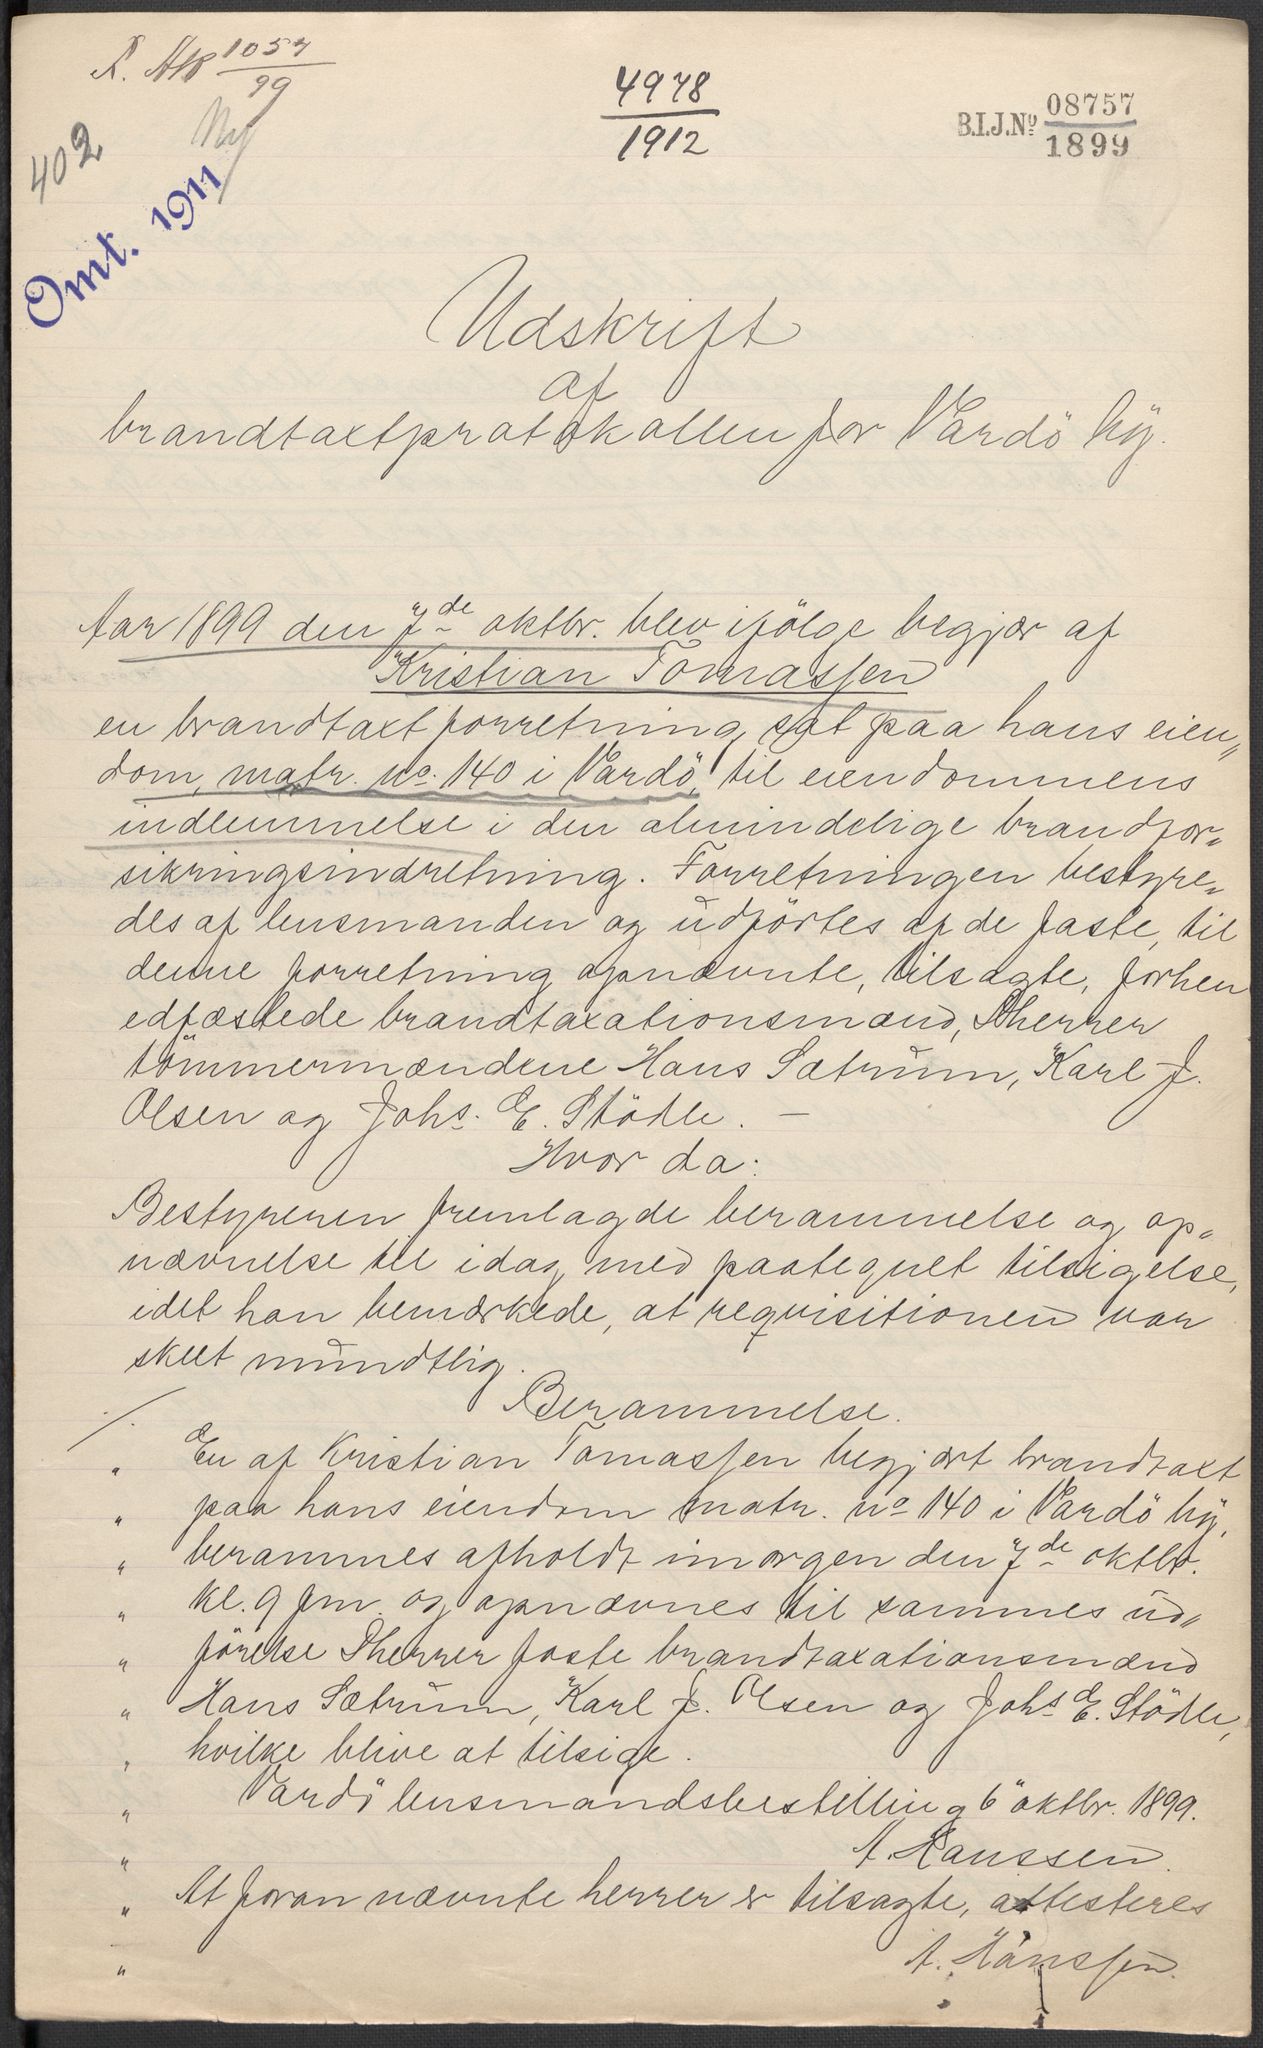 1057
99
Ny
402
Omt. 1911
4978
1912
B.I.J.No 08757
1899
Udskrift
af
brandtaxtprotokollen for Vardö by.
Aar 1899 den 7de oktbr. blev ifölge begjær af
Kristian Tomassen
en brandtaxtforretning sat paa hans eien„
dom, matr. no. 140 i Vardö, til eiendommens
indlemmelse i den almindelige brandfor„
sikringsindretning. Forretningen bestyre„
des af lensmanden og udförtes af de faste, til
denne forretning opnævnte, tilsagte, forhen
edfæstede brandtaxationsmænd, Dherrer
tömmermændene Hans Sætrum, Karl J.
Olsen og Johs. E. Stödle. —
Hvor da:
Bestyreren fremlagde berammelse og op„
nævnelse til idag med paategnet tilsigelse,
idet han bemærkede, at requisitionen var
skeet mundtlig.
Berammelse.
./.
„ En af Kristian Tomassen begjært brandtaxt
„ paa hans eiendom matr. no 140 i Vardö by,
„ berammes afholdt imorgen den 7de oktbr.
„ kl. 9 fm. og opnævnes til sammes ud„
„ förelse Dherrer faste brandtaxationsmænd
„ Hans Sætrum, Karl J. Olsen og Johs E. Stödle,
„ hvilke blive at tilsige.
„ Vardö lensmandsbestilling 6 oktbr. 1899.
„ A. Hanssen.
„ At foran nævnte herrer er tilsagte, attesteres
„ A. Hanssen.